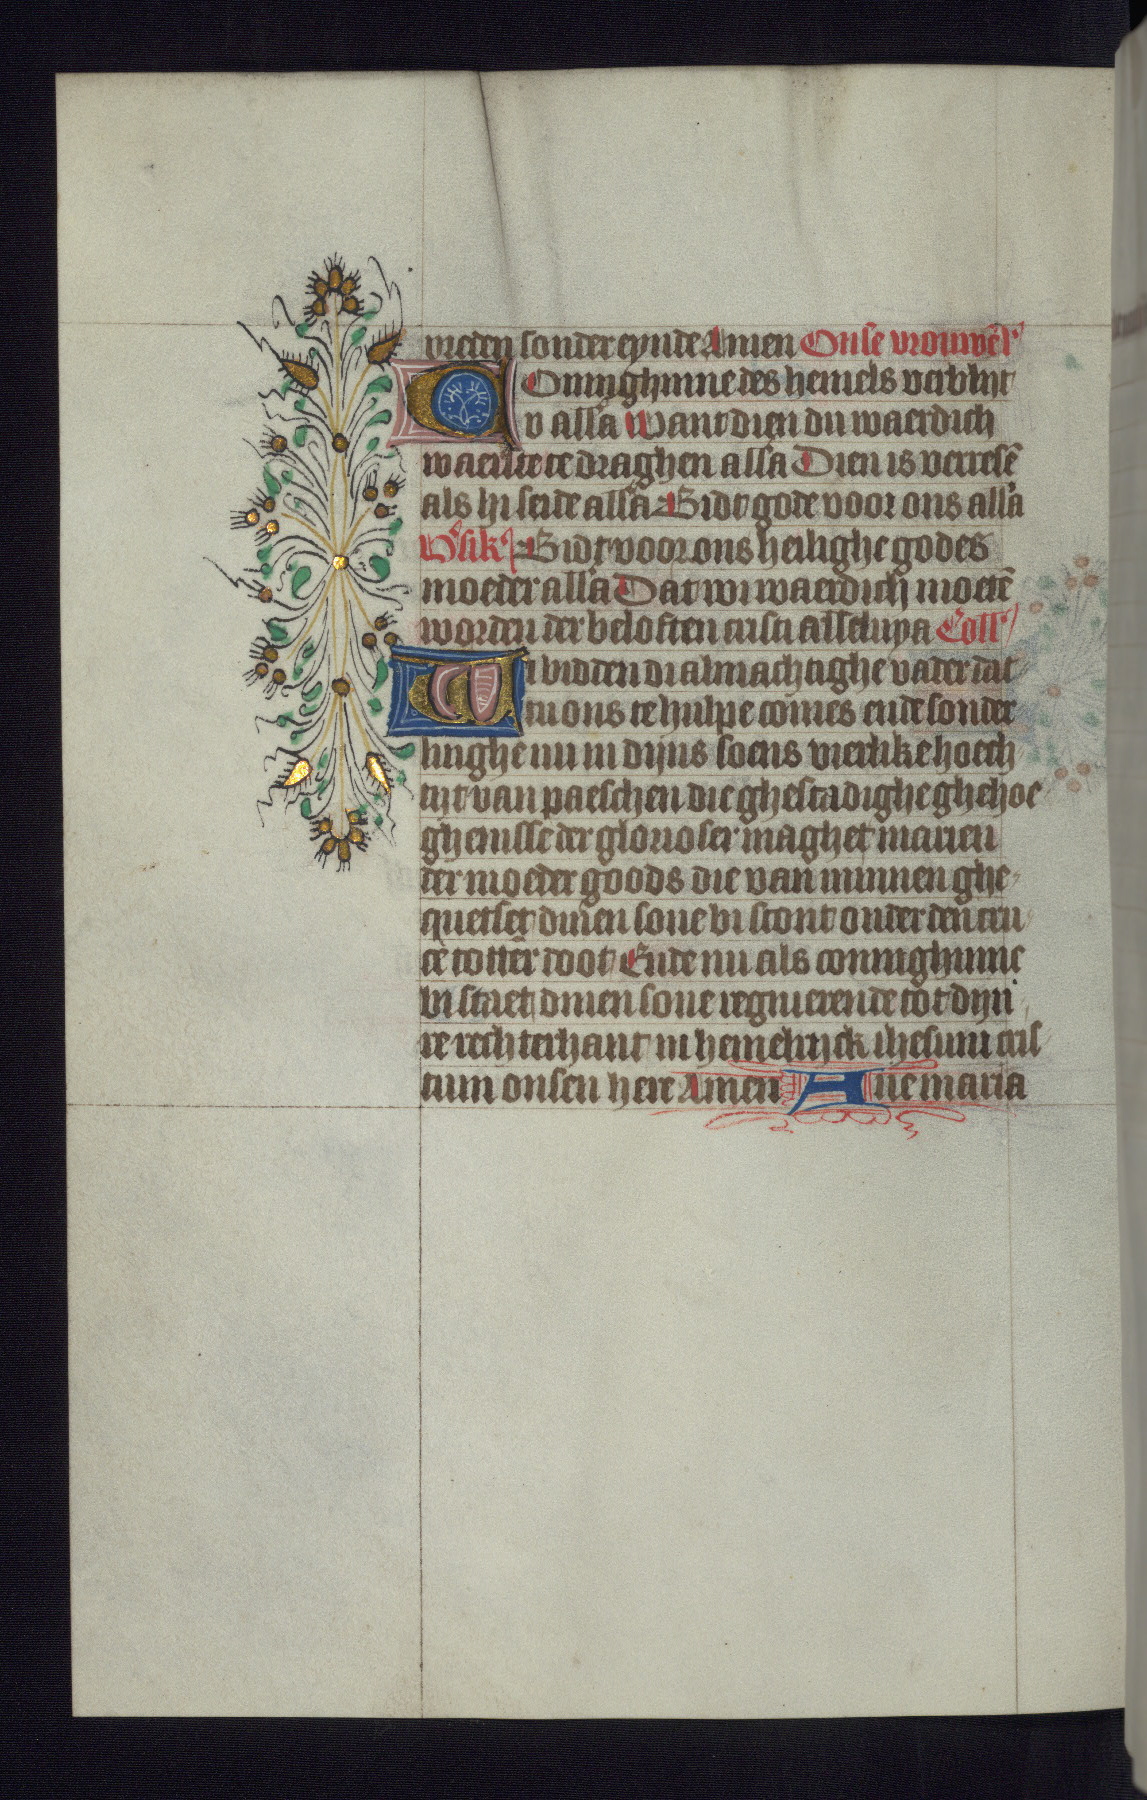 vreden sonder eynde Amen Onse vrouwē
COninghinne des hemels verblijt
v alla Want dien du waerdich
waerste te draghen alla Dien is verresē
als hi seide alla Bidt gode voor ons alla
Bidt voor ons heilighe godes
moeder alla Dat wi waerdich moetē
worden der beloften cristi alleluya Coll
WI bidden di almachtighe vader dat
tu ons te hulpe comes ende sonder
linghe nu in dijns soens vierlike hoech
tijt van paeschen die ghestadighe ghehoe
ghenisse der glorioser maghet marien
der moeder goods die van minnen ghe
quetset dinen sone bi stont onder den cru
cē totter doot Ende nu als coninghinne
bi staet dinen sone regnierende tot dijn
re rechterhant in hemelrijck ihesum cris
tum onsen here Amen Aue maria